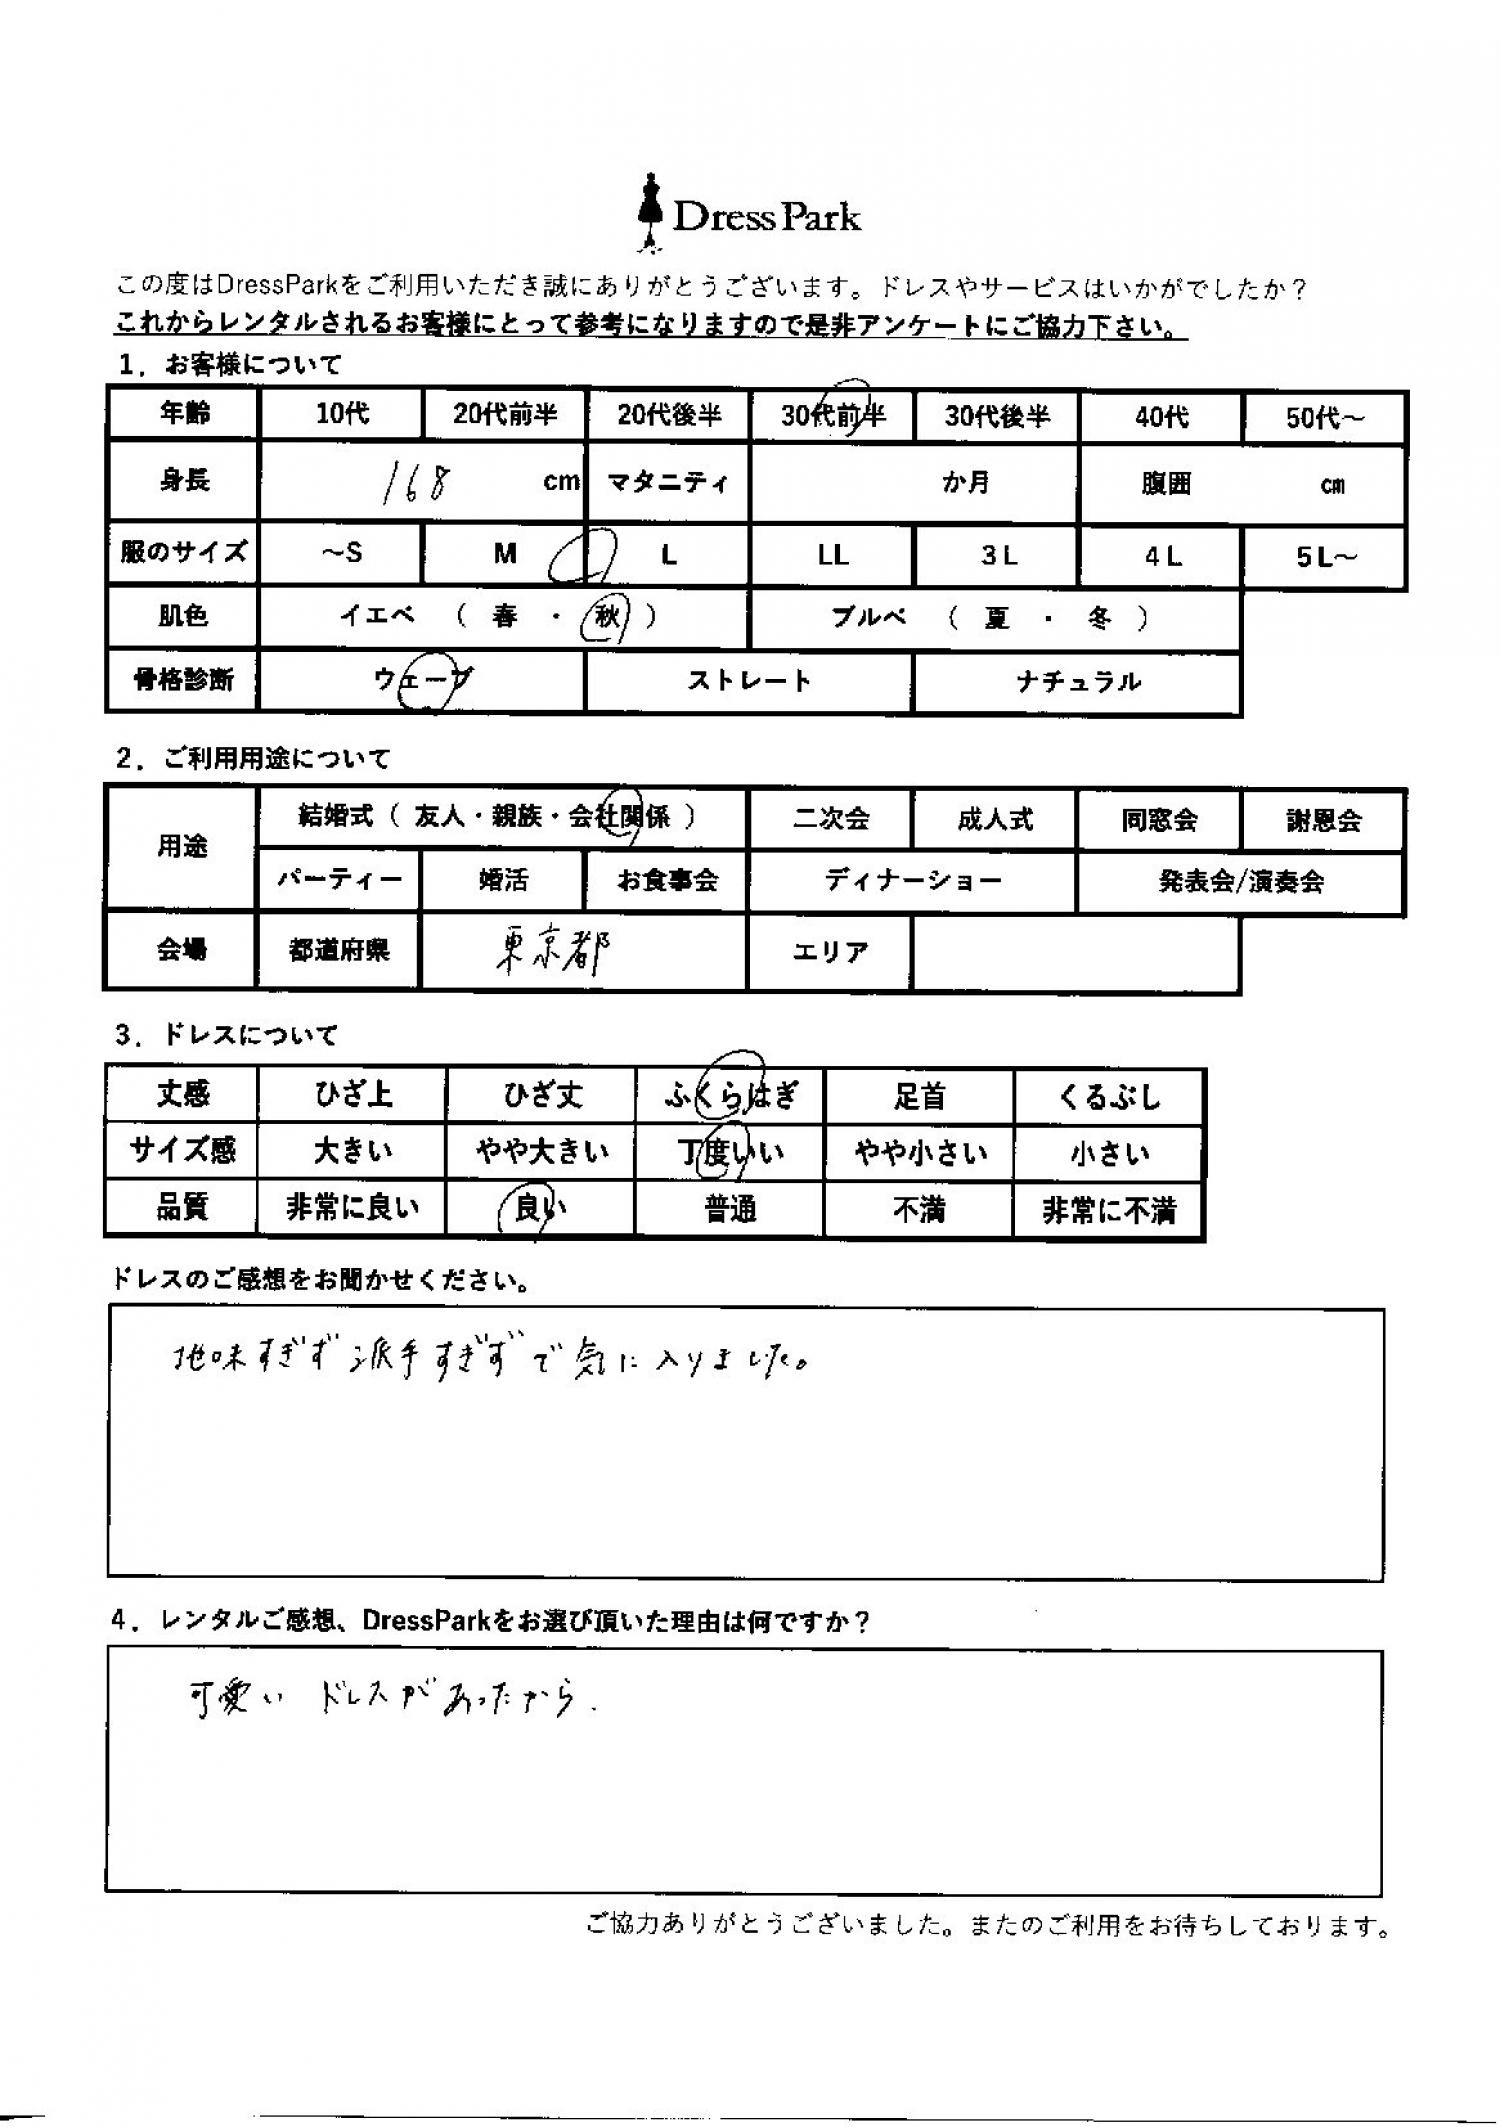 Dress Park
この度はDressParkをご利用いただき誠にありがとうございます。ドレスやサービスはいかがでしたか？
これからレンタルされるお客様にとって参考になりますので是非アンケートにご協力下さい。
1．お客様について
年齢 10代 20代前半 20代後半 30代前半 30代後半 40代 50代～
身長 168 cm マタニティ か月 腹囲 cm
服のサイズ ～S M L LL 3L 4L 5L～
肌色 イエベ （ 春 ・ 秋 ） ブルベ （ 夏 ・ 冬 ）
骨格診断 ウェーブ ストレート ナチュラル
2．ご利用用途について
用途 結婚式（ 友人・親族・会社関係 ） 二次会 成人式 同窓会 謝恩会
パーティー 婚活 お食事会 ディナーショー 発表会/演奏会
会場 都道府県 東京都 エリア
3．ドレスについて
丈感 ひざ上 ひざ丈 ふくらはぎ 足首 くるぶし
サイズ感 大きい やや大きい 丁度いい やや小さい 小さい
品質 非常に良い 良い 普通 不満 非常に不満
ドレスのご感想をお聞かせください。
地味すぎず派手すぎずで気に入りました。
4．レンタルご感想、DressParkをお選び頂いた理由は何ですか？
可愛い ドレスがあったから.
ご協力ありがとうございました。またのご利用をお待ちしております。